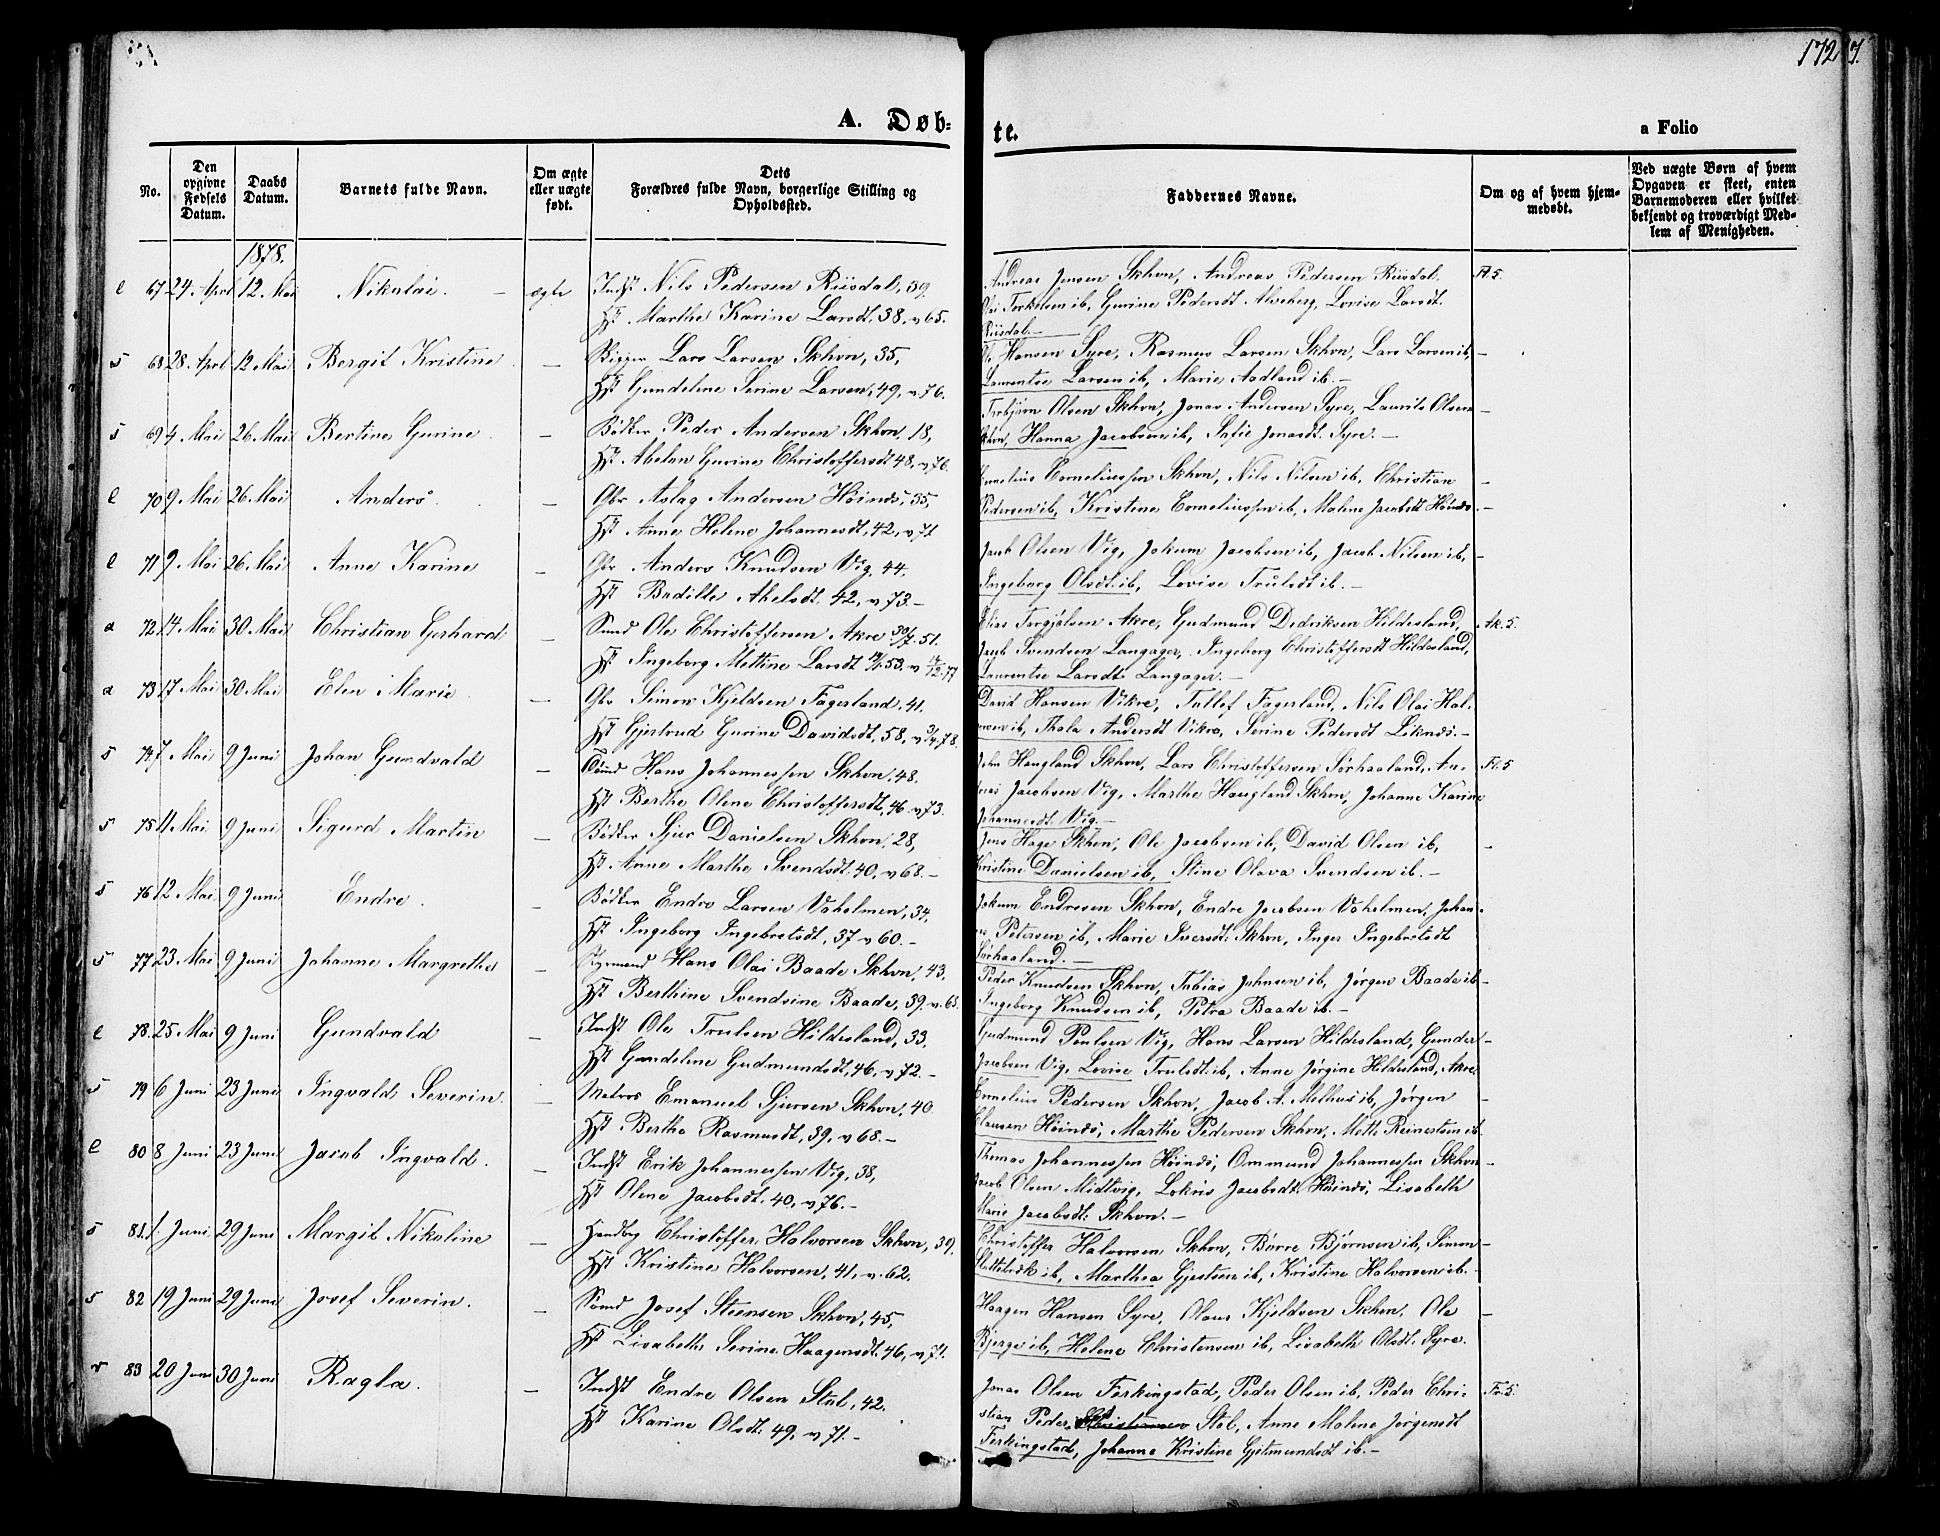 172
7.
A. Døb-
te.
a Folio
No.
Den opgivne Fødsels Datum.
Daabs Datum.
Barnets fulde Navn.
Om ægte eller uægte født.
Dets Forældres fulde Navn, borgerlige Stilling og Opholdssted.
Faddernes Navne.
Om og af hvem hjemmedøbt.
Ved uægte Børn af hvem Opgaven er skeet, enten Barnemoderen eller hvilket bekjendt og troværdigt Medlem af Menigheden.
1878.
e 67 24 Aprl 12 Mai Nikolai. — ægte Indst Nils Pedersen Riisdal, 39.
Hst Marthe Karine Larsdt, 38, v 65.
Andreas Jensen Skhvn, Andreas Pedersen Riisdal. Fl. 5.
Olai Torkelsen ib, Gurine Pedersdt Alveberg, Lovise Larsdt.
Riisdal. —
s 68 28 Aprl 12 Mai Bergit Kristine. — Bygger Lars Larsen Skhvn, 35,
Hst Gundeline Serine Larsen, 49, v 76.
Ole Hansen Syre, Rasmus Larsen Skhvn, Lars Larsen ib, —
Laurentse Larsen ib, Marie Aadland ib. —
s 69 4 Mai 26 Mai Bertine Gurine. — Bødker Peder Andersen Skhvn, 18,
Hst Abelon Gurine Christoffersdt 48, v 76.
Torbjørn Olsen Skhvn, Jonas Andersen Syre, Laurits Olsen —
Skhvn, Hanna Jacobsen ib, Sofie Jonasdt. Syre. —
e 70 9 Mai 26 Mai Anders. — Gbr Aslag Andersen Høines, 55,
Hst Anne Helene Johannesdt, 42, v 71
Cornelius Corneliussen Skhvn, Nils Nilsen ib, Christian —
Pedersen ib, Kristine Corneliussen ib, Malene Jacobsdt Høines. —
e 71 9 Mai 26 Mai Anne Karine — Gbr Anders Knudsen Vig, 44.
Hst Bodille Akelsdt. 42, v 73. —
Jacob Olsen Vig, Jokum Jacobsen ib, Jacob Nilsen ib, —
Ingeborg Olsdt. ib, Lovise Trulsdt ib. —
a 72 14 Mai 30 Mai Christian Gerhard — Smed Ole Christoffersen Akre 30/7. 51.
Hst Ingeborg Mettine Larsdt 53, v 77
Elias Torgjelsen Akre, Gudmund Didriksen Hildesland, Ak. 5.
Jacob Svendsen Langager, Ingeborg Christoffersdt Hildesland,
Laurentse Larsdt. Langager. —
a 73 17 Mai 30 Mai Elen Marie — Gbr Simon Kjeldsen Fagerland, 41.
Hst Gjertrud Gurine Davidsdt, 58, v 3/4 78.
David Hansen Vikre, Tollef Fagerland, Nils Olai Hal-
vorsen ib, Thala Andersdt Vikre, Serine Pedersdt Liknes. —
s 74 7 Mai 9 Juni Johan Gundvald — Sømd Hans Johannessen Skhvn, 48.
Hst Berthe Olene Christoffersdt, 46 v 73.
John Haugland Skhvn, Lars Christoffersen Sørhaaland, An- Fl. 5
dreas Jacobsen Vig, Marthe Haugland Skhvn, Johanne Karine
Johannesdt. Vig. —
s 75 11 Mai 9 Juni Sigurd Martin — Bødker Sjur Danielsen Skhvn, 28,
Hst Anne Marthe Svendsdt. 40, v 68. —
Jens Hage Skhvn, Ole Jacobsen ib, David Olsen ib, —
Kristine Danielsen ib, Stine Olava Svendsen ib. —
s 76 12 Mai 9 Juni Endre. — Bødker Endre Larsen Vaholmen, 34,
Hst Ingeborg Ingebretsdt, 37 v 60. —
Jokum Endresen Skhvn, Endre Jacobsen Vaholmen, Johan- —
nes Petersen ib, Marie Iversdt. Skhvn, Inger Ingebretsdt
Sørhaaland. —
s 77 23 Mai 9 Juni Johanne Margrethe — Hans Olai Baade Skhvn, 43.
Hst Berthine Svendsine Baade, 39, v. 63.
Peder Knudsen Skhvn, Tobias Johnsen ib, Jørgen Baade ib —
Ingeborg Knudsen ib, Petra Baade ib. —
e 78. 25 Mai 9 Juni Gundvald — Indst Ole Trulsen Hildesland, 33.
Hst Gundeline Gudmundsdt, 46, v 72. —
Gudmund Poulsen Vig, Hans Larsen Hildesland, Gunder —
Jacobsen Vig, Lovise Trulsdt. ib, Anne Jørgine Hildesland, Akre.
s 79 6 Juni 23 Juni Ingvald Severin. — Matros Emanuel Sjursen Skhvn, 40
Hst Berthe Rasmusdt, 39, v 68. —
Cornelius Pedersen Skhvn, Jacob A. Melhus ib, Jørgen —
Clausen Høines, Marthe Pedersen Skhvn, Mette Reinertsen ib.
e 80 8 Juni 23 Juni Jacob Ingvald. — Indst Erik Johannessen Vig, 38,
Hst Olene Jacobsdt. 40, v 76. —
Thomas Johannessen Høines, Ommund Johannessen Skhvn —
Jacob Olsen Midtvig, Lokris Jacobsdt. Høines, Lisabeth
Marie Jacobsdt. Skhvn. —
s 81. 1. Juni 29 Juni Margit Nikoline — Handby Christoffer Halvorsen Skhvn, 39.
Hst Kristine Halvorsen, 41, v. 62.
Christoffer Halvorsen Skhvn, Børre Bjørnsen ib, Simon —
ib, Marthea Gjertsen ib, Kristine Halvorsen ib. —
s 82 19 Juni 29 Juni Josef Severin. — Sømd Josef Steensen Skhvn, 45,
Hst Lisabeth Serine Haagensdt. 46, v 71.
Haagen Hansen Syre, Olaus Kjeldsen Skhvn, Ole —
Bjerge ib, Helene Christensen ib, Lisabeth Olsdt. Syre.
v 83 20 Juni 30 Juni Ragla. — Indst Endre Olsen Stol, 42.
Hst Karine Olsdt. 49, v 71. —
Jonas Olsen Ferkingstad, Peder Olsen ib, Peder Chri- Fr. 5.
stian Peders Stol, Anne Malene Jørgensdt
Ferkingstad, Johanne Kristine Gjetmundsdt ib. —